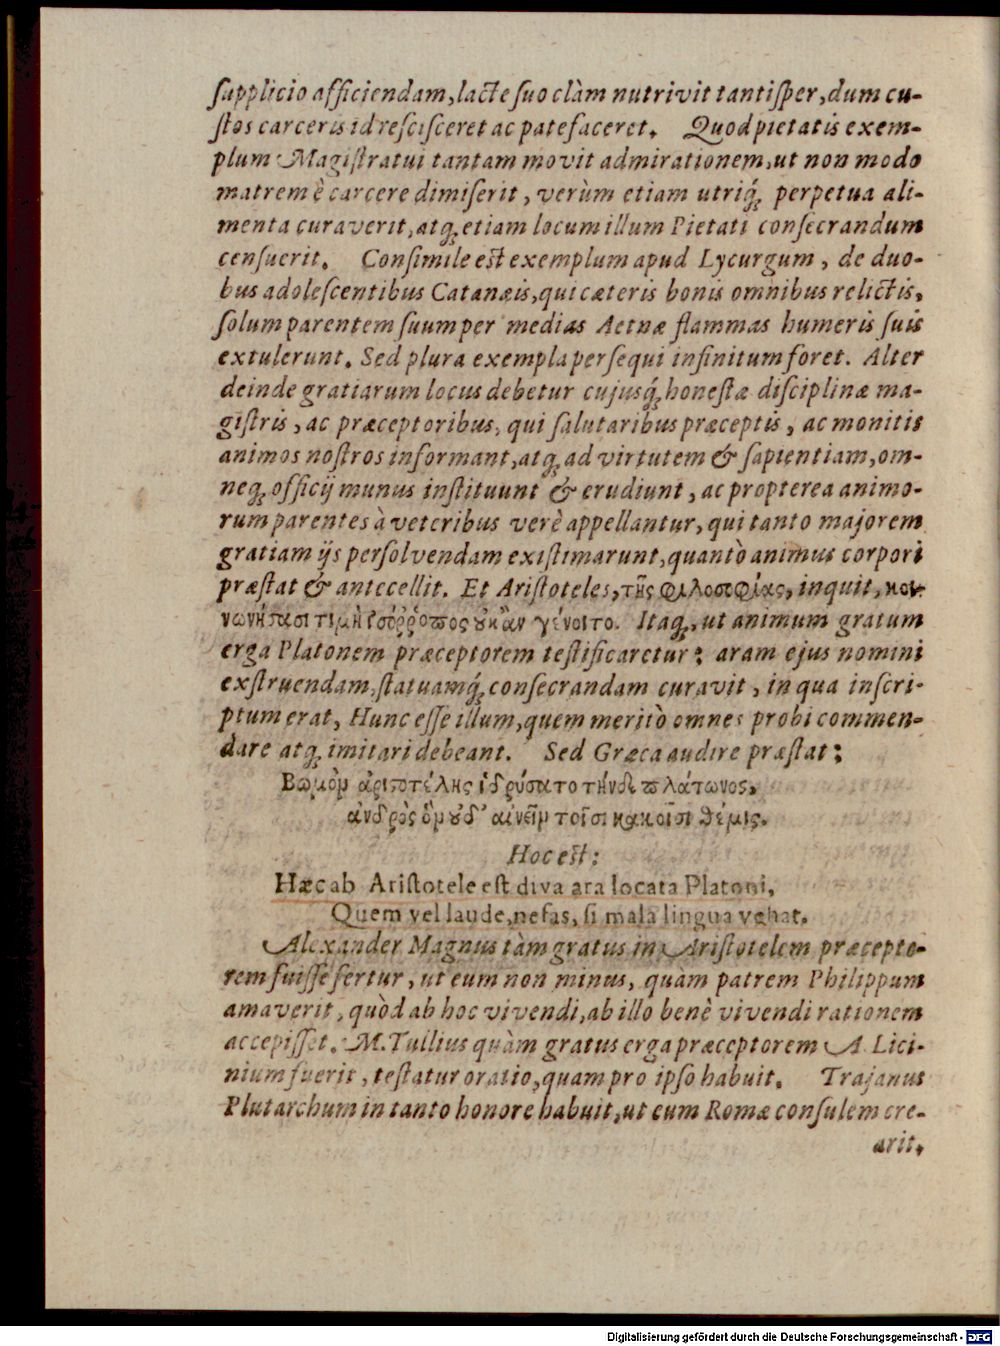 ſupplicio afficiendam, lacte ſuo clàm nutrivit tantiſper, dum cu-
ſtos carceris id reſciſceret ac patefaceret. Quod pietatis exem-
plum Magiſtratui tantam movit admirationem, ut non modo
matrem è carcere dimiſerit, verùm etiam utriq́; perpetua ali-
menta curaverit, atq; etiam locum illum Pietati conſecrandum
cenſuerit. Conſimile eſt exemplum apud Lycurgum, de duo-
bus adoleſcentibus Catanæis, qui cæteris bonis omnibus relictis,
ſolum parentem ſuum per medias Aetnæ flammas humeris ſuis
extulerunt. Sed plura exempla perſequi infinitum foret. Alter
deinde gratiarum locus debetur cujusq́; honeſtæ diſciplinæ ma-
giſtris, ac præceptoribus, qui ſalutaribus præceptis, ac monitis
animos noſtros informant, atq; ad virtutem & ſapientiam, om-
neq; officij munus inſtituunt & erudiunt, ac propterea animo-
rum parentes à veteribus verè appellantur, qui tanto majorem
gratiam ijs perſolvendam exiſtimarunt, quantò animus corpori
præſtat & antecellit. Et Ariſtoteles, τῆς φιλοσοφίας, inquit, κοι-
νωνήπασι τιμὴ ἰσόῤῥοπος οὐκ ἂν γένοιτο. Itaq;, ut animum gratum
erga Platonem præceptorem teſtificaretur; aram ejus nomini
exſtruendam, ſtatuamq́; conſecrandam curavit, in qua inſcri-
ptum erat, Hunc eſſe illum, quem meritò omnes probi commen-
dare atq; imitari debeant. Sed Græca audire præſtat:
Βωμὸμ ἀριστοτέλης ἱδρύσατο τήνδε πλάτωνος,
ἀνδρὸς ὃμ οὐδ' αἰνεῖμ τοῖσι κακοῖσι θέμις.
Hoc eſt:
Hæc ab Ariſtotele eſt diva ara locata Platoni,
Quem vel laude, nefas, ſi mala lingua vehat.
Alexander Magnus tàm gratus in Ariſtotelem præcepto-
rem fuiſſe fertur, ut eum non minus, quàm patrem Philippum
amaverit, quòd ab hoc vivendi, ab illo benè vivendi rationem
accepiſſet. M. Tullius quàm gratus erga præceptorem A. Lici-
nium fuerit, teſtatur oratio, quam pro ipſo habuit. Trajanus
Plutarchum in tanto honore habuit, ut eum Romæ conſulem cre-
arit.
Digitalisierung gefördert durch die Deutsche Forschungsgemeinschaft - DFG